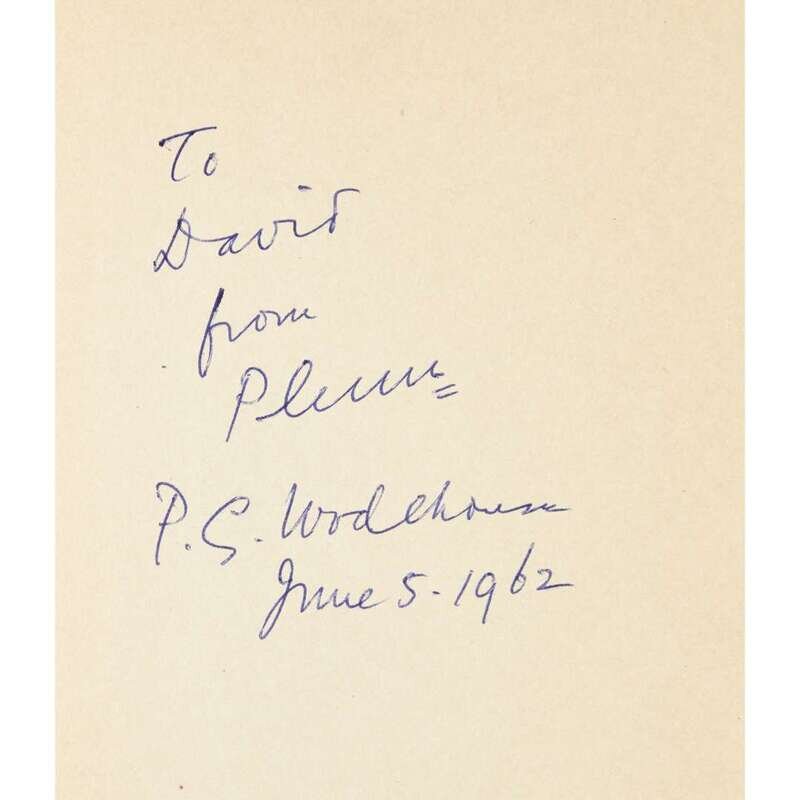 To
David
from
Plum
P. G. Wodehouse
June 5. 1962